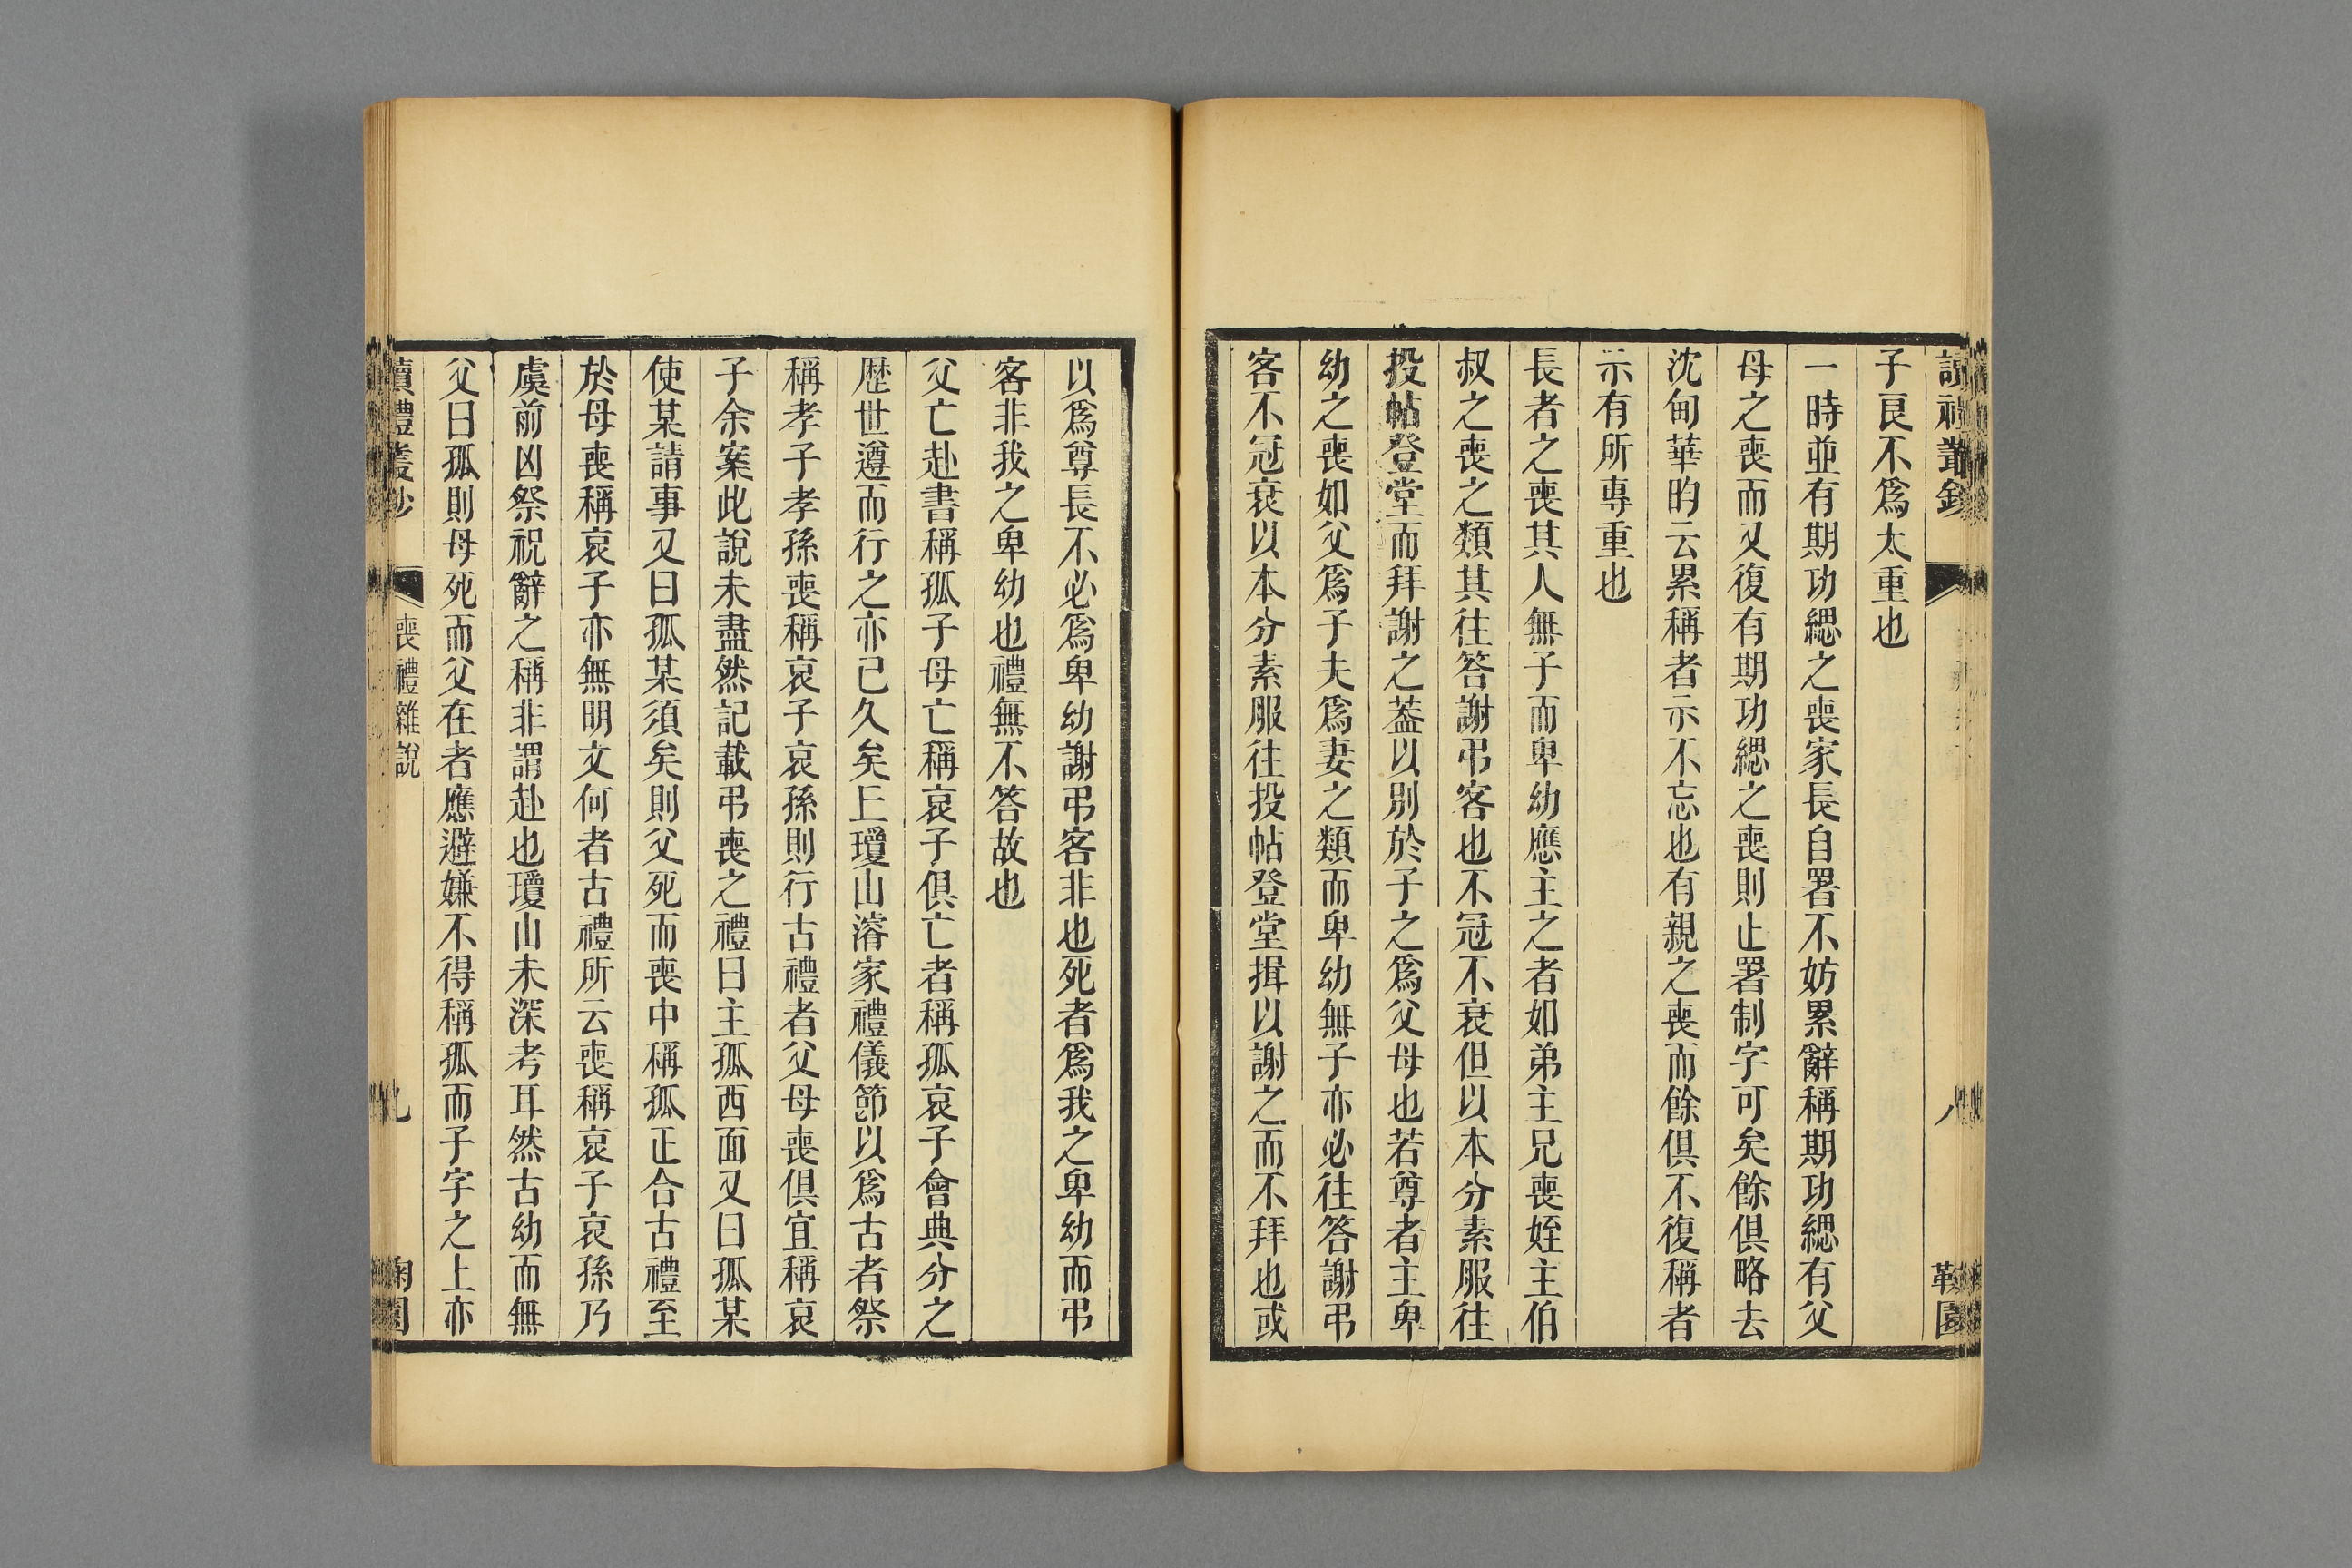 讀禮叢鈔
八
鞠園
子良不爲太重也
一時並有期功緦之喪家長自署不妨累辭稱期功緦有父
母之喪而又復有期功緦之喪則止署制字可矣餘俱略去
沈甸華昀云累稱者示不忘也有親之喪而餘俱不復稱者
示有所專重也
長者之喪其人無子而卑幼應主之者如弟主兄喪姪主伯
叔之喪之類其往答謝弔客也不冠不衰但以本分素服往
投帖登堂而拜謝之葢以別於子之爲父母也若尊者主卑
幼之喪如父爲子夫爲妻之類而卑幼無子亦必往答謝弔
客不冠衰以本分素服往投帖登堂揖以謝之而不拜也或
以爲尊長不必爲卑幼謝弔客非也死者爲我之卑幼而弔
客非我之卑幼也禮無不答故也
父亡赴書稱孤子母亡稱哀子俱亡者稱孤哀子會典分之
歷世遵而行之亦已久矣丘瓊山濬家禮儀節以爲古者祭
稱孝子孝孫喪稱哀子哀孫則行古禮者父母喪俱宜稱哀
子余案此說未盡然記載弔喪之禮曰主孤西面又曰孤某
使某請事又曰孤某須矣則父死而喪中稱孤正合古禮至
於母喪稱哀子亦無明文何者古禮所云喪稱哀子哀孫乃
虞前凶祭祝辭之稱非謂赴也瓊山未深考耳然古幼而無
父曰孤則母死而父在者應避嫌不得稱孤而子字之上亦
讀禮叢鈔
喪禮雜說
九
鞠園